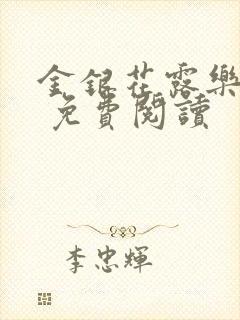 金銀花露樂
免費閱讀
李忠輝